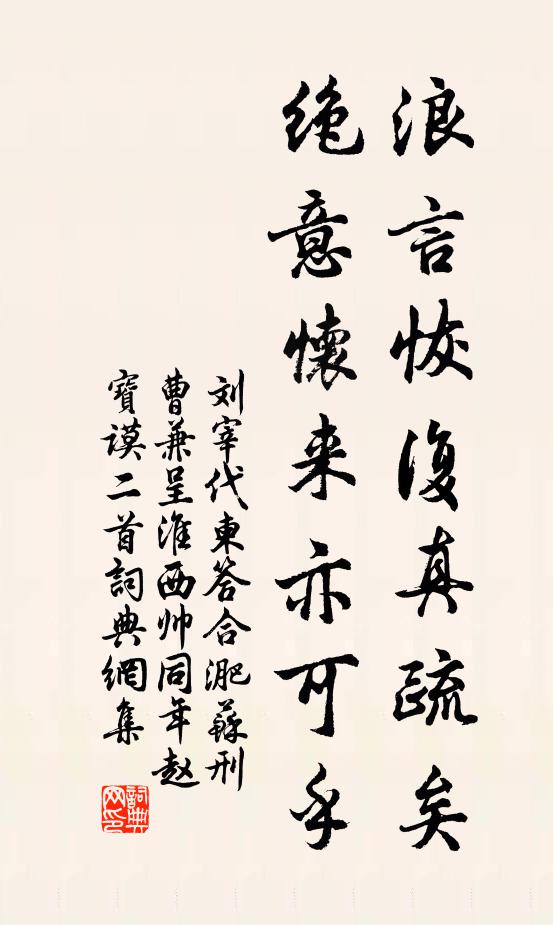 浪言恢復真疏矣
绝意懷来亦可乎
刘宰代東答合淝蘇刑
曹兼呈淮西帅同年赵
寶谟二首詞典網集
詞典网印